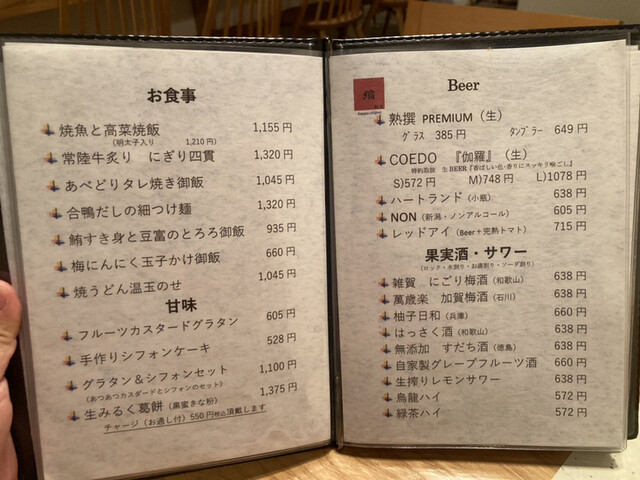 お食事
焼魚と高菜焼飯 1,155円
(明太子入り 1,210円)
常陸牛炙り にぎり四貫 1,320円
あべどりタレ焼き御飯 1,045円
合鴨だしの細つけ麺 1,320円
鮪すき身と豆富のとろろ御飯 935円
梅にんにく玉子かけ御飯 660円
焼うどん温玉のせ 1,045円
甘味
フルーツカスタードグラタン 605円
手作りシフォンケーキ 528円
グラタン&シフォンセット 1,100円
(あつあつカスタードとシフォンのセット)
生みるく葛餅(黒蜜きな粉) 1,375円
チャージ(お通し付)550円税込頂戴します
Beer
熟撰 PREMIUM(生)
グラス 385円 タンブラー 649円
COEDO 『伽羅』(生)
特約取扱 生BEER『香ばしい色・香りにスッキリ喉ごし』
S)572円 M)748円 L)1078円
ハートランド(小瓶) 638円
NON(新潟・ノンアルコール) 605円
レッドアイ(Beer+完熟トマト) 715円
果実酒・サワー
(ロック・水割り・お湯割り・ソーダ割り)
雑賀 にごり梅酒(和歌山) 638円
萬歳楽 加賀梅酒(石川) 638円
柚子日和(兵庫) 660円
はっさく酒(和歌山) 638円
無添加 すだち酒(徳島) 638円
自家製グレープフルーツ酒 660円
生搾りレモンサワー 638円
烏龍ハイ 572円
緑茶ハイ 572円